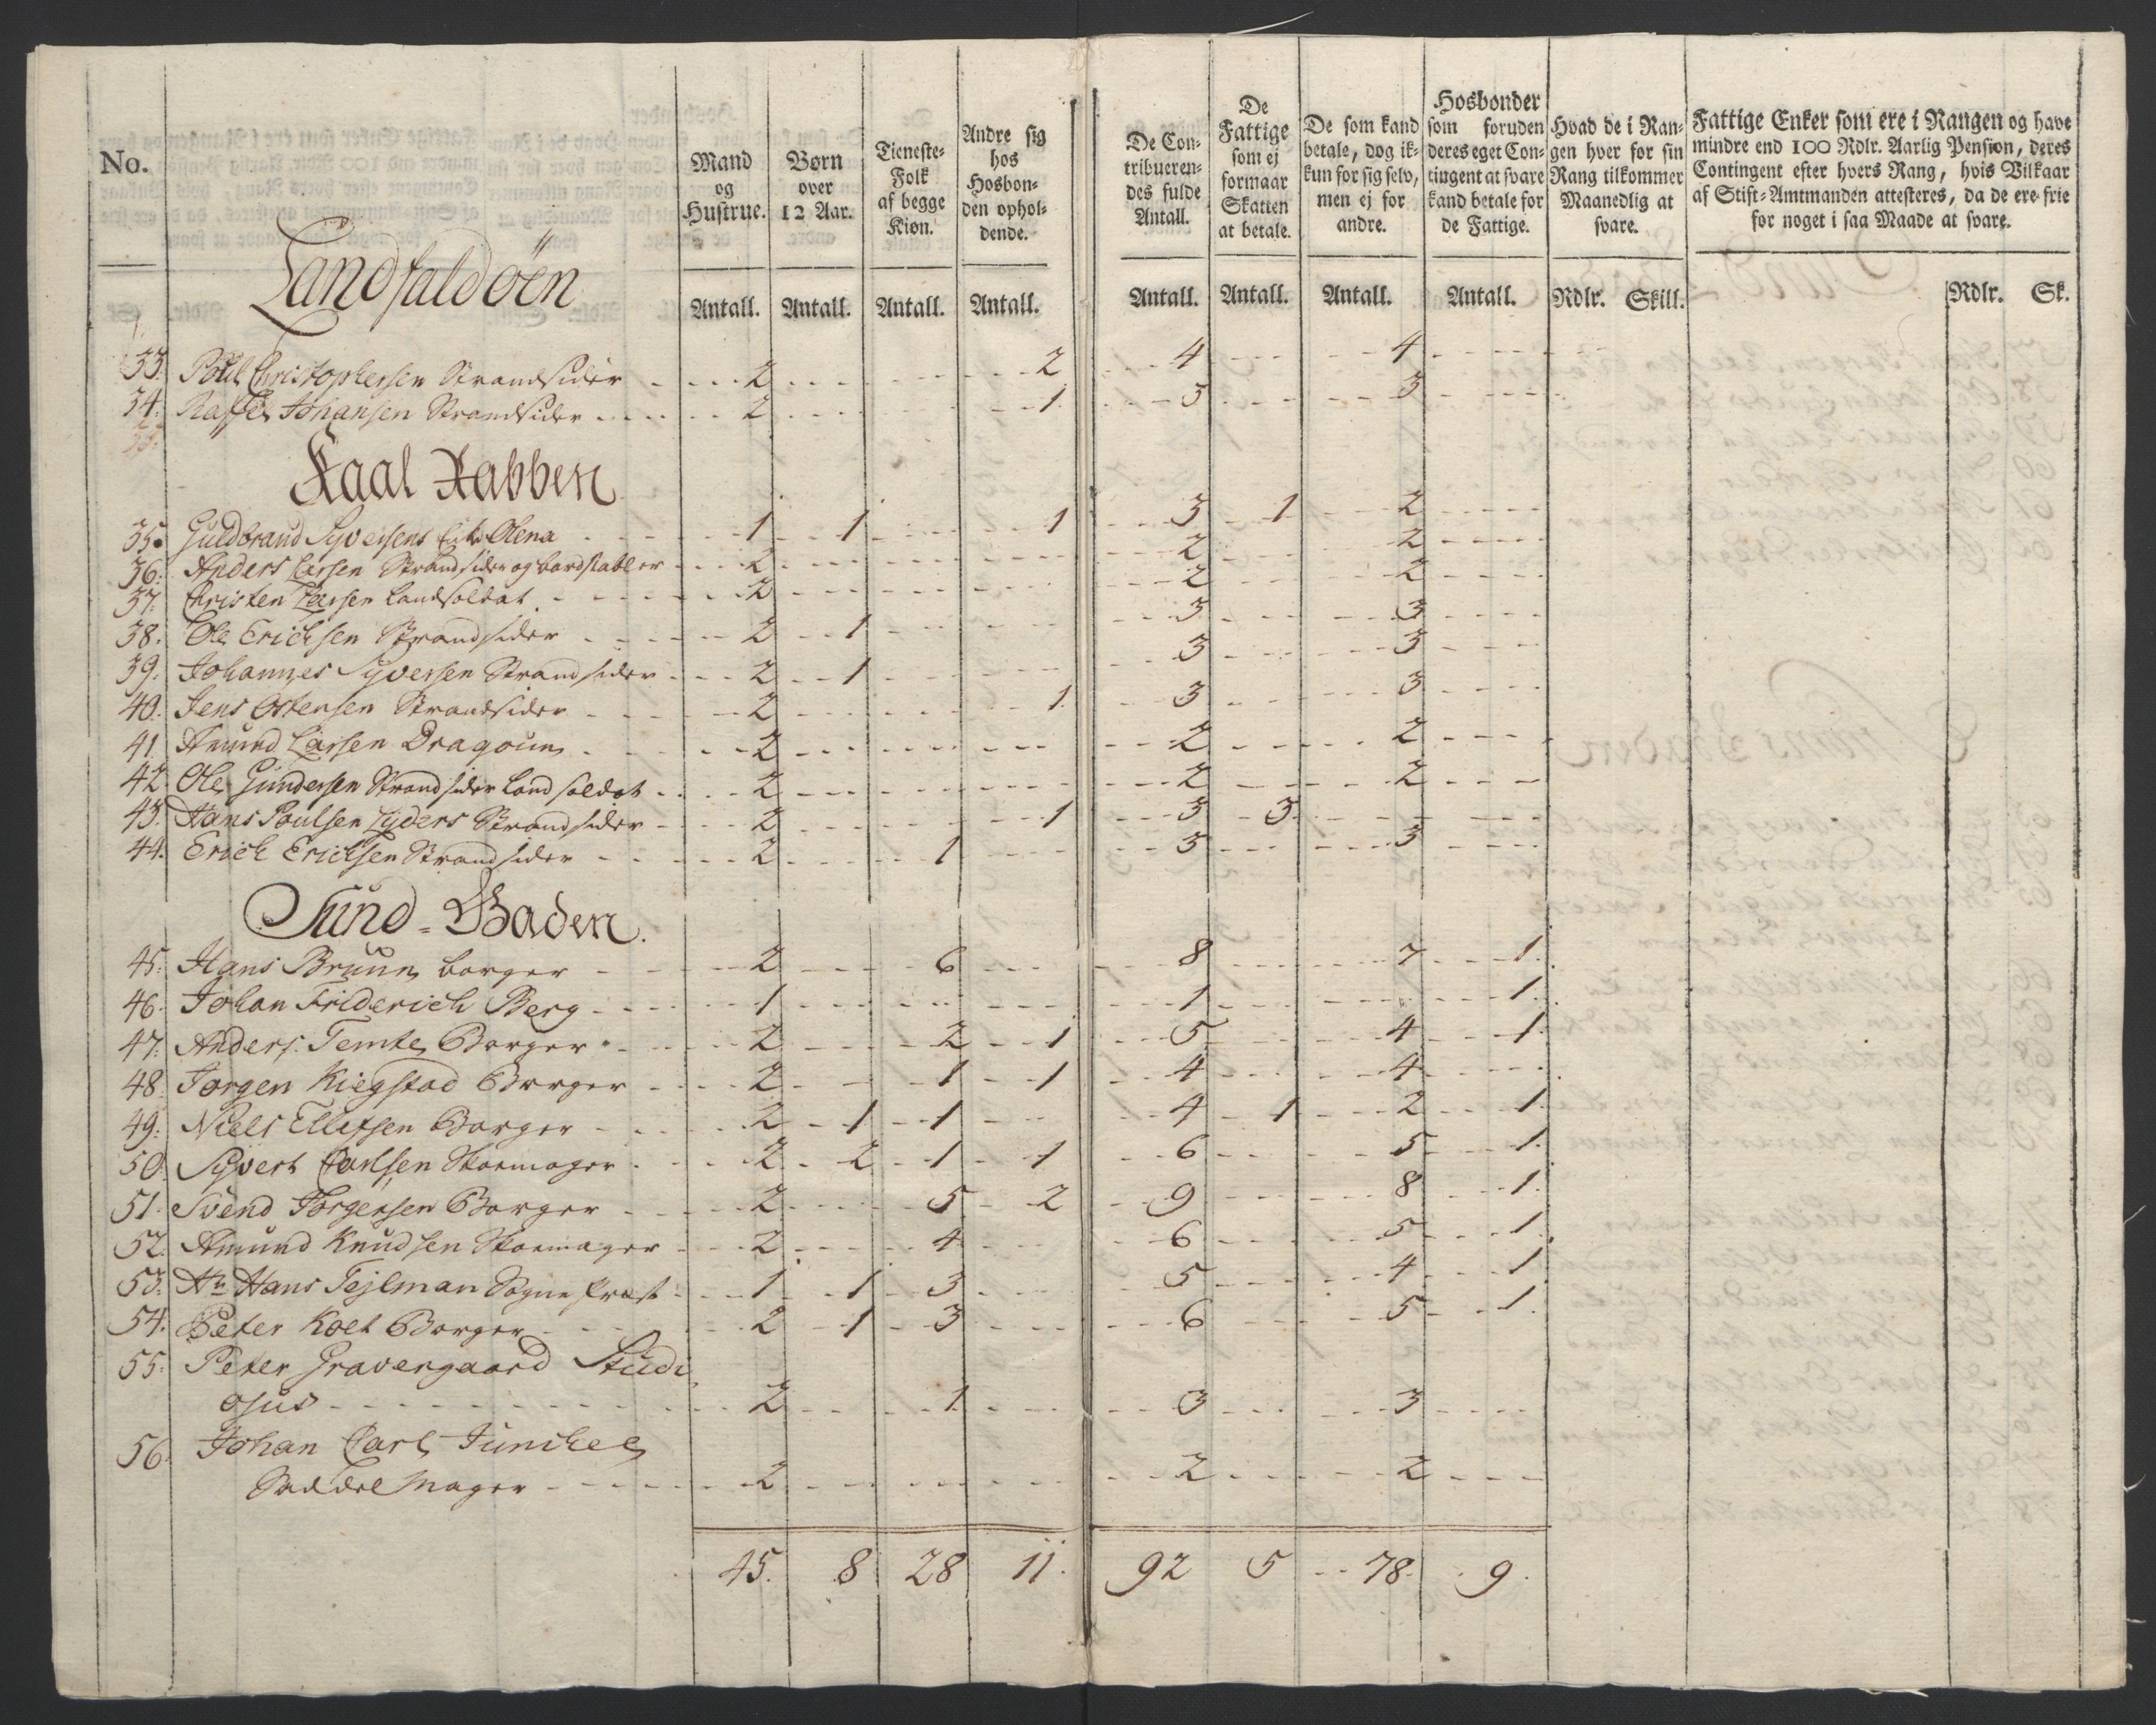 No.
Mand og Hustrue.
Børn over 12 Aar.
Tieneste-Folk af begge Kiøn.
Andre sig hos Hosbonden opholdende.
De Contribuerendes fulde Antall.
De Fattige som ej formaar Skatten at betale.
De som kand betale, dog ikkun for sig selv, men ej for andre.
Hosbonder som foruden deres eget Contingent at svare kand betale for de Fattige.
Hvad de i Rangen hver for sin Rang tilkommer Maanedlig at svare.
Fattige Enker som ere i Rangen og have mindre end 100 Rdlr. Aarlig Pension, deres Contingent efter hvers Rang, hvis Vilkaar af Stift-Amtmanden attesteres, da de ere frie for noget i saa Maade at svare.
Antall. Antall. Antall. Antall. Antall. Antall. Antall. Antall. Rdlr. Skill. Rdlr. Sk.
Landfaldöen
33. Poul Christophersen Strandsider 2 2 4 4
34. Rasmus Johansen Strandsider 2 1 3 3
Kaal Rabben
35. Guldbrand Syversens Enke Olena 1 1 1 3 1 2
36. Anders Larsen Strandsider og bordstabler 2 2 2
37. Christen Larsen Landsoldat 2 2 2
38. Ole Erichsen Strandsider 2 1 3 3
39. Johannes Syversen Strandsider 2 1 3 3
40. Jens Ostensen Strandsider 2 1 3 3
41. Amund Larsen Dragoun 2 2 2
42. Ole Gundersen Strandsider Land soldat 2 2 2
43. Hans Poulsen Lyders Strandsider 2 1 3 3
44. Erich Erichsen Strandsider 2 1 3 3
Sund-Baden.
45. Hans Bruun borger 2 6 8 7 1
46. Johan Friderich Berg 1 1 1
47. Anders Temte Borger 2 2 1 5 4 1
48. Jørgen Kiegstad Borger 2 1 1 4 4
49. Niels Ellefsen Borger 2 1 1 4 1 2 1
50. Syvert Carlsen Skoemager 2 2 1 1 6 5 1
51. Svend Jørgensen Borger 2 5 2 9 8 1
52. Amund Knudsen Skoemager 2 4 6 5 1
53. Hr Hans Tejlman Sogne Præst 1 1 3 5 4 1
54. Peter Koet Borger 2 1 3 6 5 1
55. Peter Gravengaard Studi
osus 2 1 3 3
56. Johan Carl Junchel
Saddelmager 2 2 2
45. 8 28 11. 92 5 78. 9.